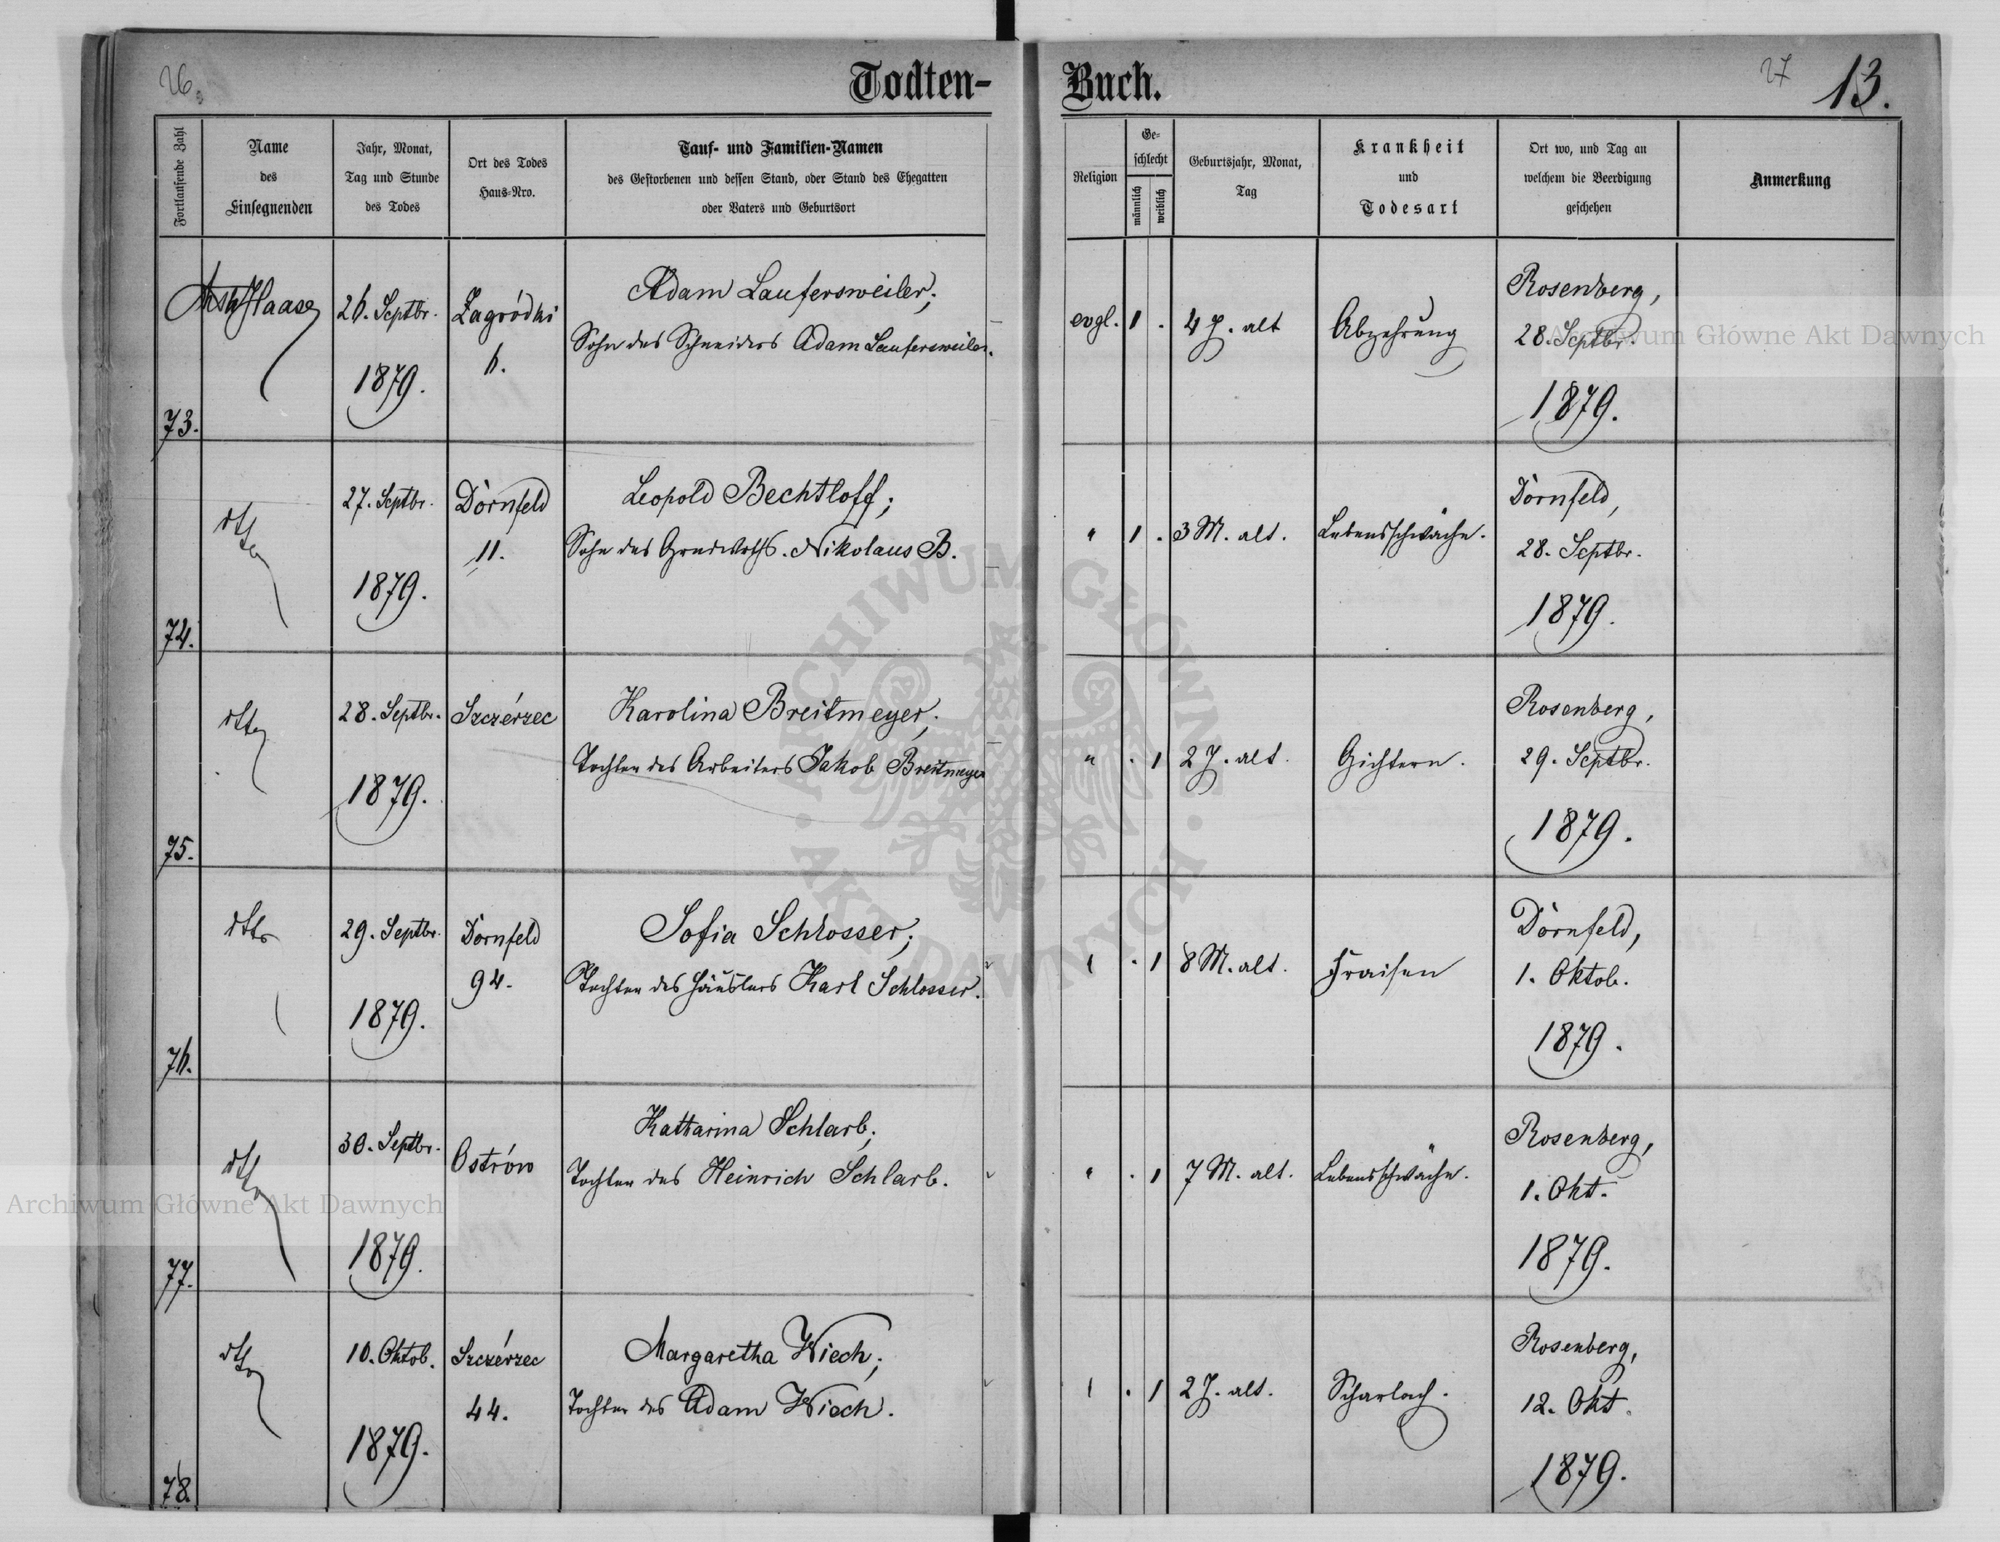 26.
27
13.
Todten-
Buch.
Fortlaufende Zahl
Name
des
Einsegnenden
Jahr, Monat,
Tag und Stunde
des Todes
Ort des Todes
Haus-Nro.
Tauf- und Familien-Namen
des Gestorbenen und dessen Stand, oder Stand des Ehegatten
oder Vaters und Geburtsort
Religion
Ge-
schlecht
männlich
weiblich
Geburtsjahr, Monat,
Tag
Krankheit
und
Todesart
Ort wo, und Tag an
welchem die Beerdigung
geschehen
Anmerkung
73.
Haase
26. Septbr.
1879.
Zagródki
6.
Adam Laufersweiler;
Sohn des Schneiders Adam Laufersweiler.
evgl.
1 .
4 J. alt
Abzehrung
Rosenberg,
28. Septbr.
1879.
74.
dtto
27. Septbr.
1879.
Dornfeld
11.
Leopold Bechtloff;
Sohn des Grundwirths. Nikolaus B.
"
1 .
3 M. alt.
Lebensschwäche.
Dornfeld,
28. Septbr.
1879.
75.
dtto
28. Septbr.
1879.
Szczérzec
Karolina Breitmeyer;
Tochter des Arbeiters Jakob Breitmeyer
"
. 1
2 J. alt.
Gichtern.
Rosenberg,
29. Septbr.
1879.
76.
dtto
29. Septbr.
1879.
Dornfeld
94.
Sofia Schlosser;
Tochter des Häuslers Karl Schlosser.
"
. 1
8 M. alt.
Fraisen
Dornfeld,
1. Oktob.
1879.
77.
dtto
30. Septbr.
1879.
Ostrów
Kattarina Schlarb;
Tochter des Heinrich Schlarb.
"
. 1
7 M. alt.
Lebensschwäche.
Rosenberg,
1. Okt.
1879.
78.
dtto
10. Oktob.
1879.
Szczérzec
44.
Margaretha Wiech;
Tochter des Adam Wiech.
"
. 1
2 J. alt.
Scharlach.
Rosenberg,
12. Okt.
1879.
Archiwum Główne Akt Dawnych
Archiwum Główne Akt Dawnych
ARCHIWUM GŁÓWNE · AKT DAWNYCH ·